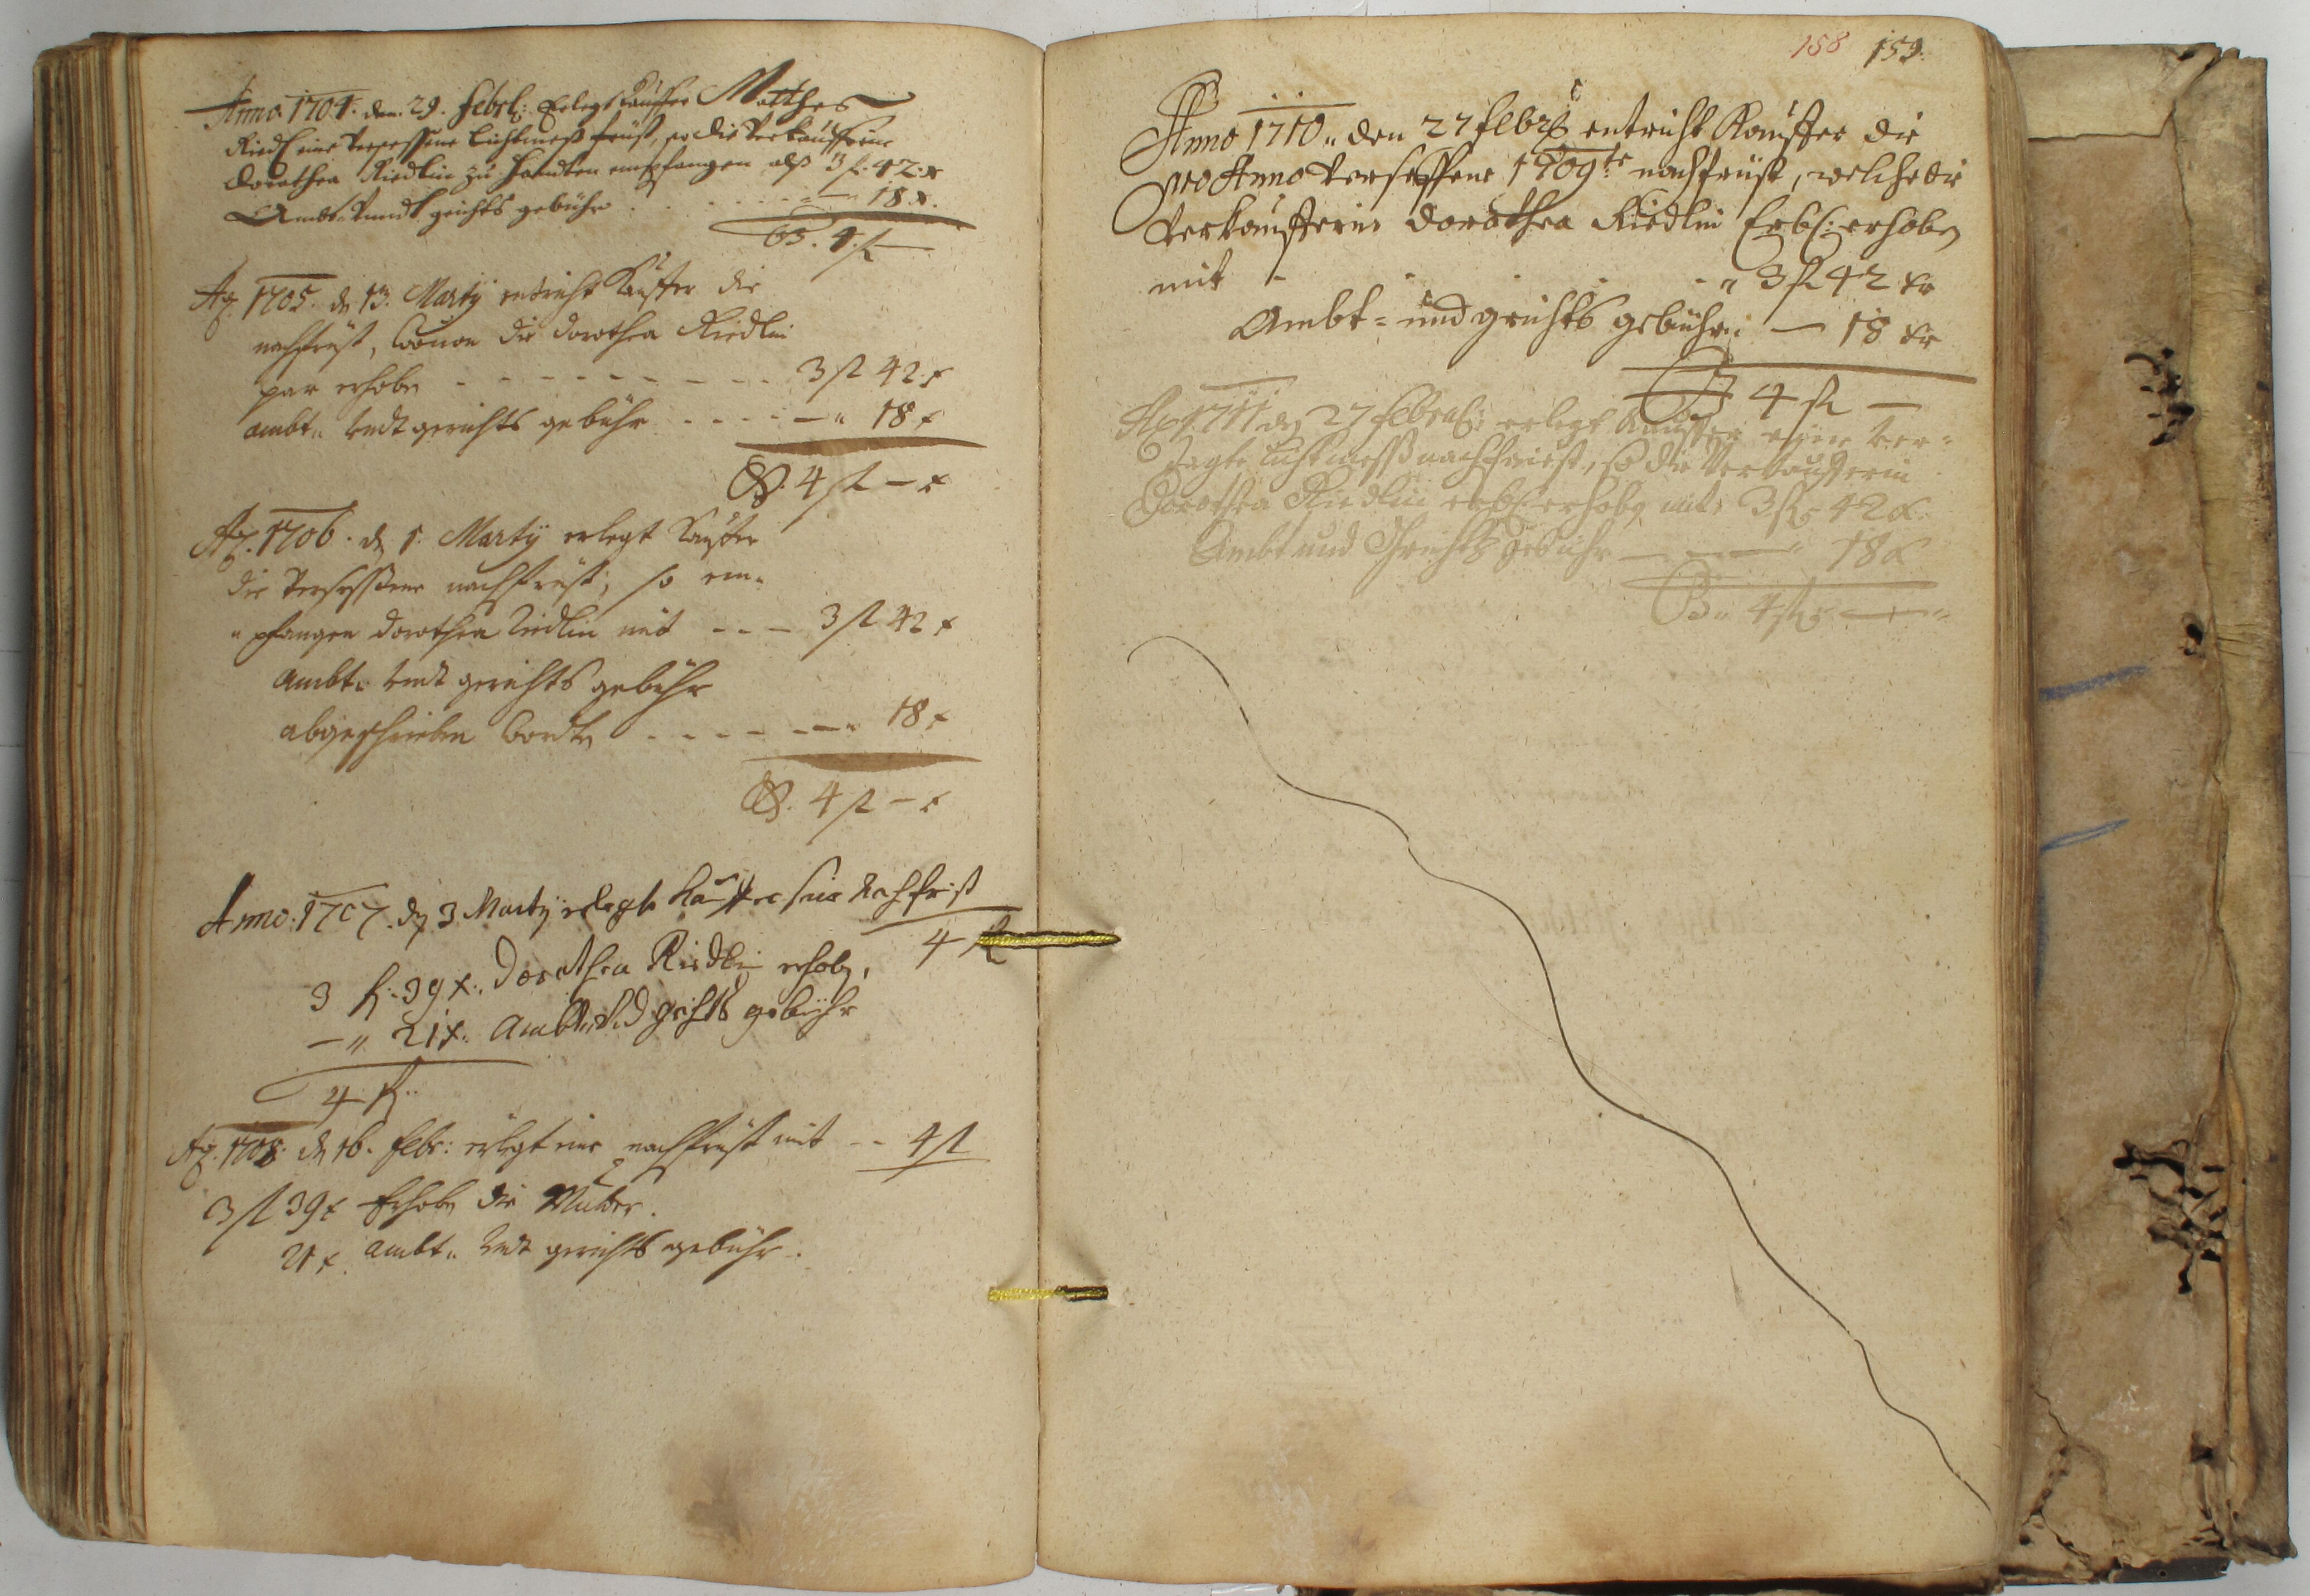 Anno 1704. den. 29. Febrl: Erlegt Kauffer Matthes
Riedl eine versessene Lichtmeß früst, so die Verkaufferin
Dorothea Riedlin zu Handten empfangen alß 3 f. 42. x
Ambt- Vundt grichts gebühr . . . . . . — 18 x.
4. fl —
Aõ. 1705. dn 13. Martÿ entricht Kauffer die
nachfrüst, Wouon die Dorothea Riedlin
par erhobn - - - - - - - - - - 3 fl 42 x
ambt„ Vndt gerichts gebühr - - - - — „ 18 x
4 fl — x
Aõ. 1706. dn 1. Martÿ erlegt Kauffer
die Versessene nachfrüst, so em-
„ pfangen Dorothea Riedlin mit - - - 3 fl 42 x
ambt„ Vndt gerichts gebühr
abgeschrieben Wordtn - - - - - — „ 18 x
4 fl — x
Anno: 1707. dn 3 Martÿ erlegt Kauffer seine Nachfrist
4 fl
3 fl. 39 x. Dorothea Riedlin erhobn,
— „ 21 x. Ambt„ Vnd grichts gebühr
4 fl..
Aõ. 1708. dn 16. Febr: erlegt eine nachfrüst mit - - 4 fl
3 fl 39 x Erhobn die Mutter.
21 x. ambt„ Vndt gerichts gebühr.
158 159.
Anno 1710„ den 27 Febr entricht Kauffer die
pro Anno Versessene 1709te nachfrüst, welche die
Verkaufferin Dorothea Riedlin Erbl: erhobn
mit - . . . . - „ 3 fl 42 xr
Ambt- und grichts gebühr: — 18 xr
4 fl —
Aõ 1711 dn 27 Febral: erlegt Kauffer eine ver-
tagte Lichtmesß nachfrist, so die Verkaufferin
Dorothea Riedlin erbl erhobn mit 3 fl 42 x.
Ambt und Grichts Gebühr — — — „ 18 x
4 fl —